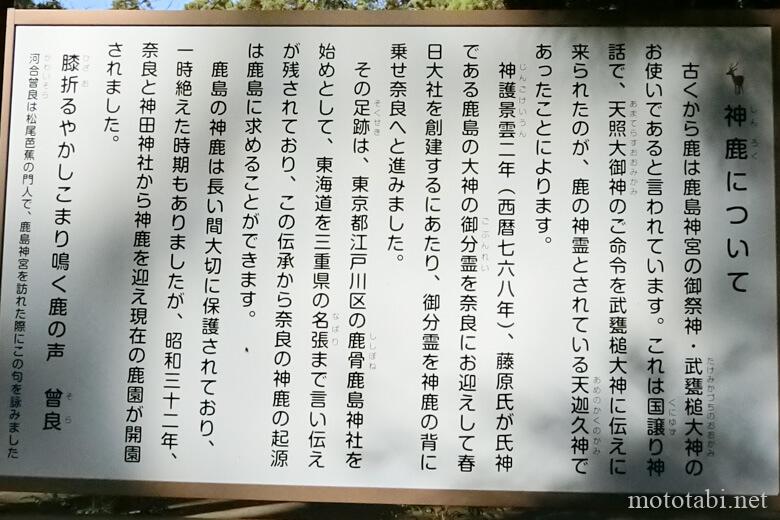 神鹿について
しんろく
古くから鹿は鹿島神宮の御祭神・武甕槌大神の
たけみかづちのおおかみ
お使いであると言われています。これは国譲り神
くにゆず
話で、天照大御神のご命令を武甕槌大神に伝えに
あまてらすおおみかみ
来られたのが、鹿の神霊とされている天迦久神で
あめのかくのかみ
あったことによります。
神護景雲二年(西暦七六八年)、藤原氏が氏神
じんごけいうん
である鹿島の大神の御分霊を奈良にお迎えして春
ごぶんれい
日大社を創建するにあたり、御分霊を神鹿の背に
乗せ奈良へと進みました。
その足跡は、東京都江戸川区の鹿骨鹿島神社を
そくせき
ししぼね
始めとして、東海道を三重県の名張まで言い伝え
なばり
が残されており、この伝承から奈良の神鹿の起源
は鹿島に求めることができます。
鹿島の神鹿は長い間大切に保護されており、
一時絶えた時期もありましたが、昭和三十二年、
奈良と神田神社から神鹿を迎え現在の鹿園が開園
されました。
膝折るやかしこまり鳴く鹿の声 曾良
ひざお
そら
河合曾良は松尾芭蕉の門人で、鹿島神宮を訪れた際にこの句を詠みました
かわいそら
mototabi.net